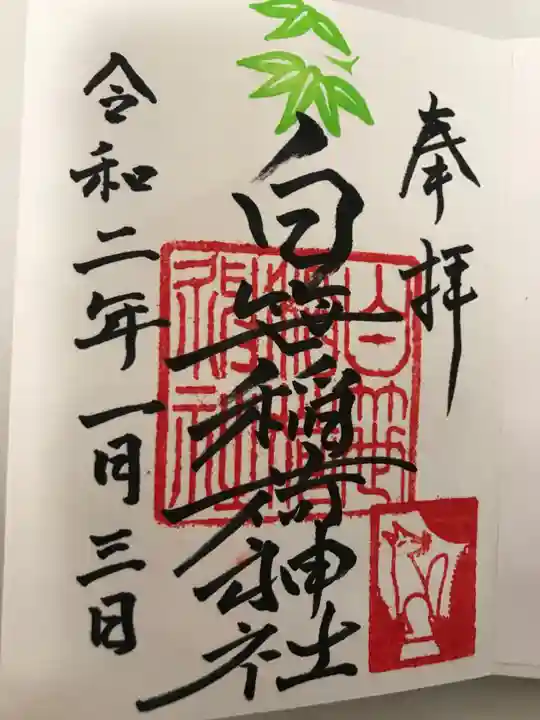 奉拝
白笹稲荷神社
令和二年一月三日